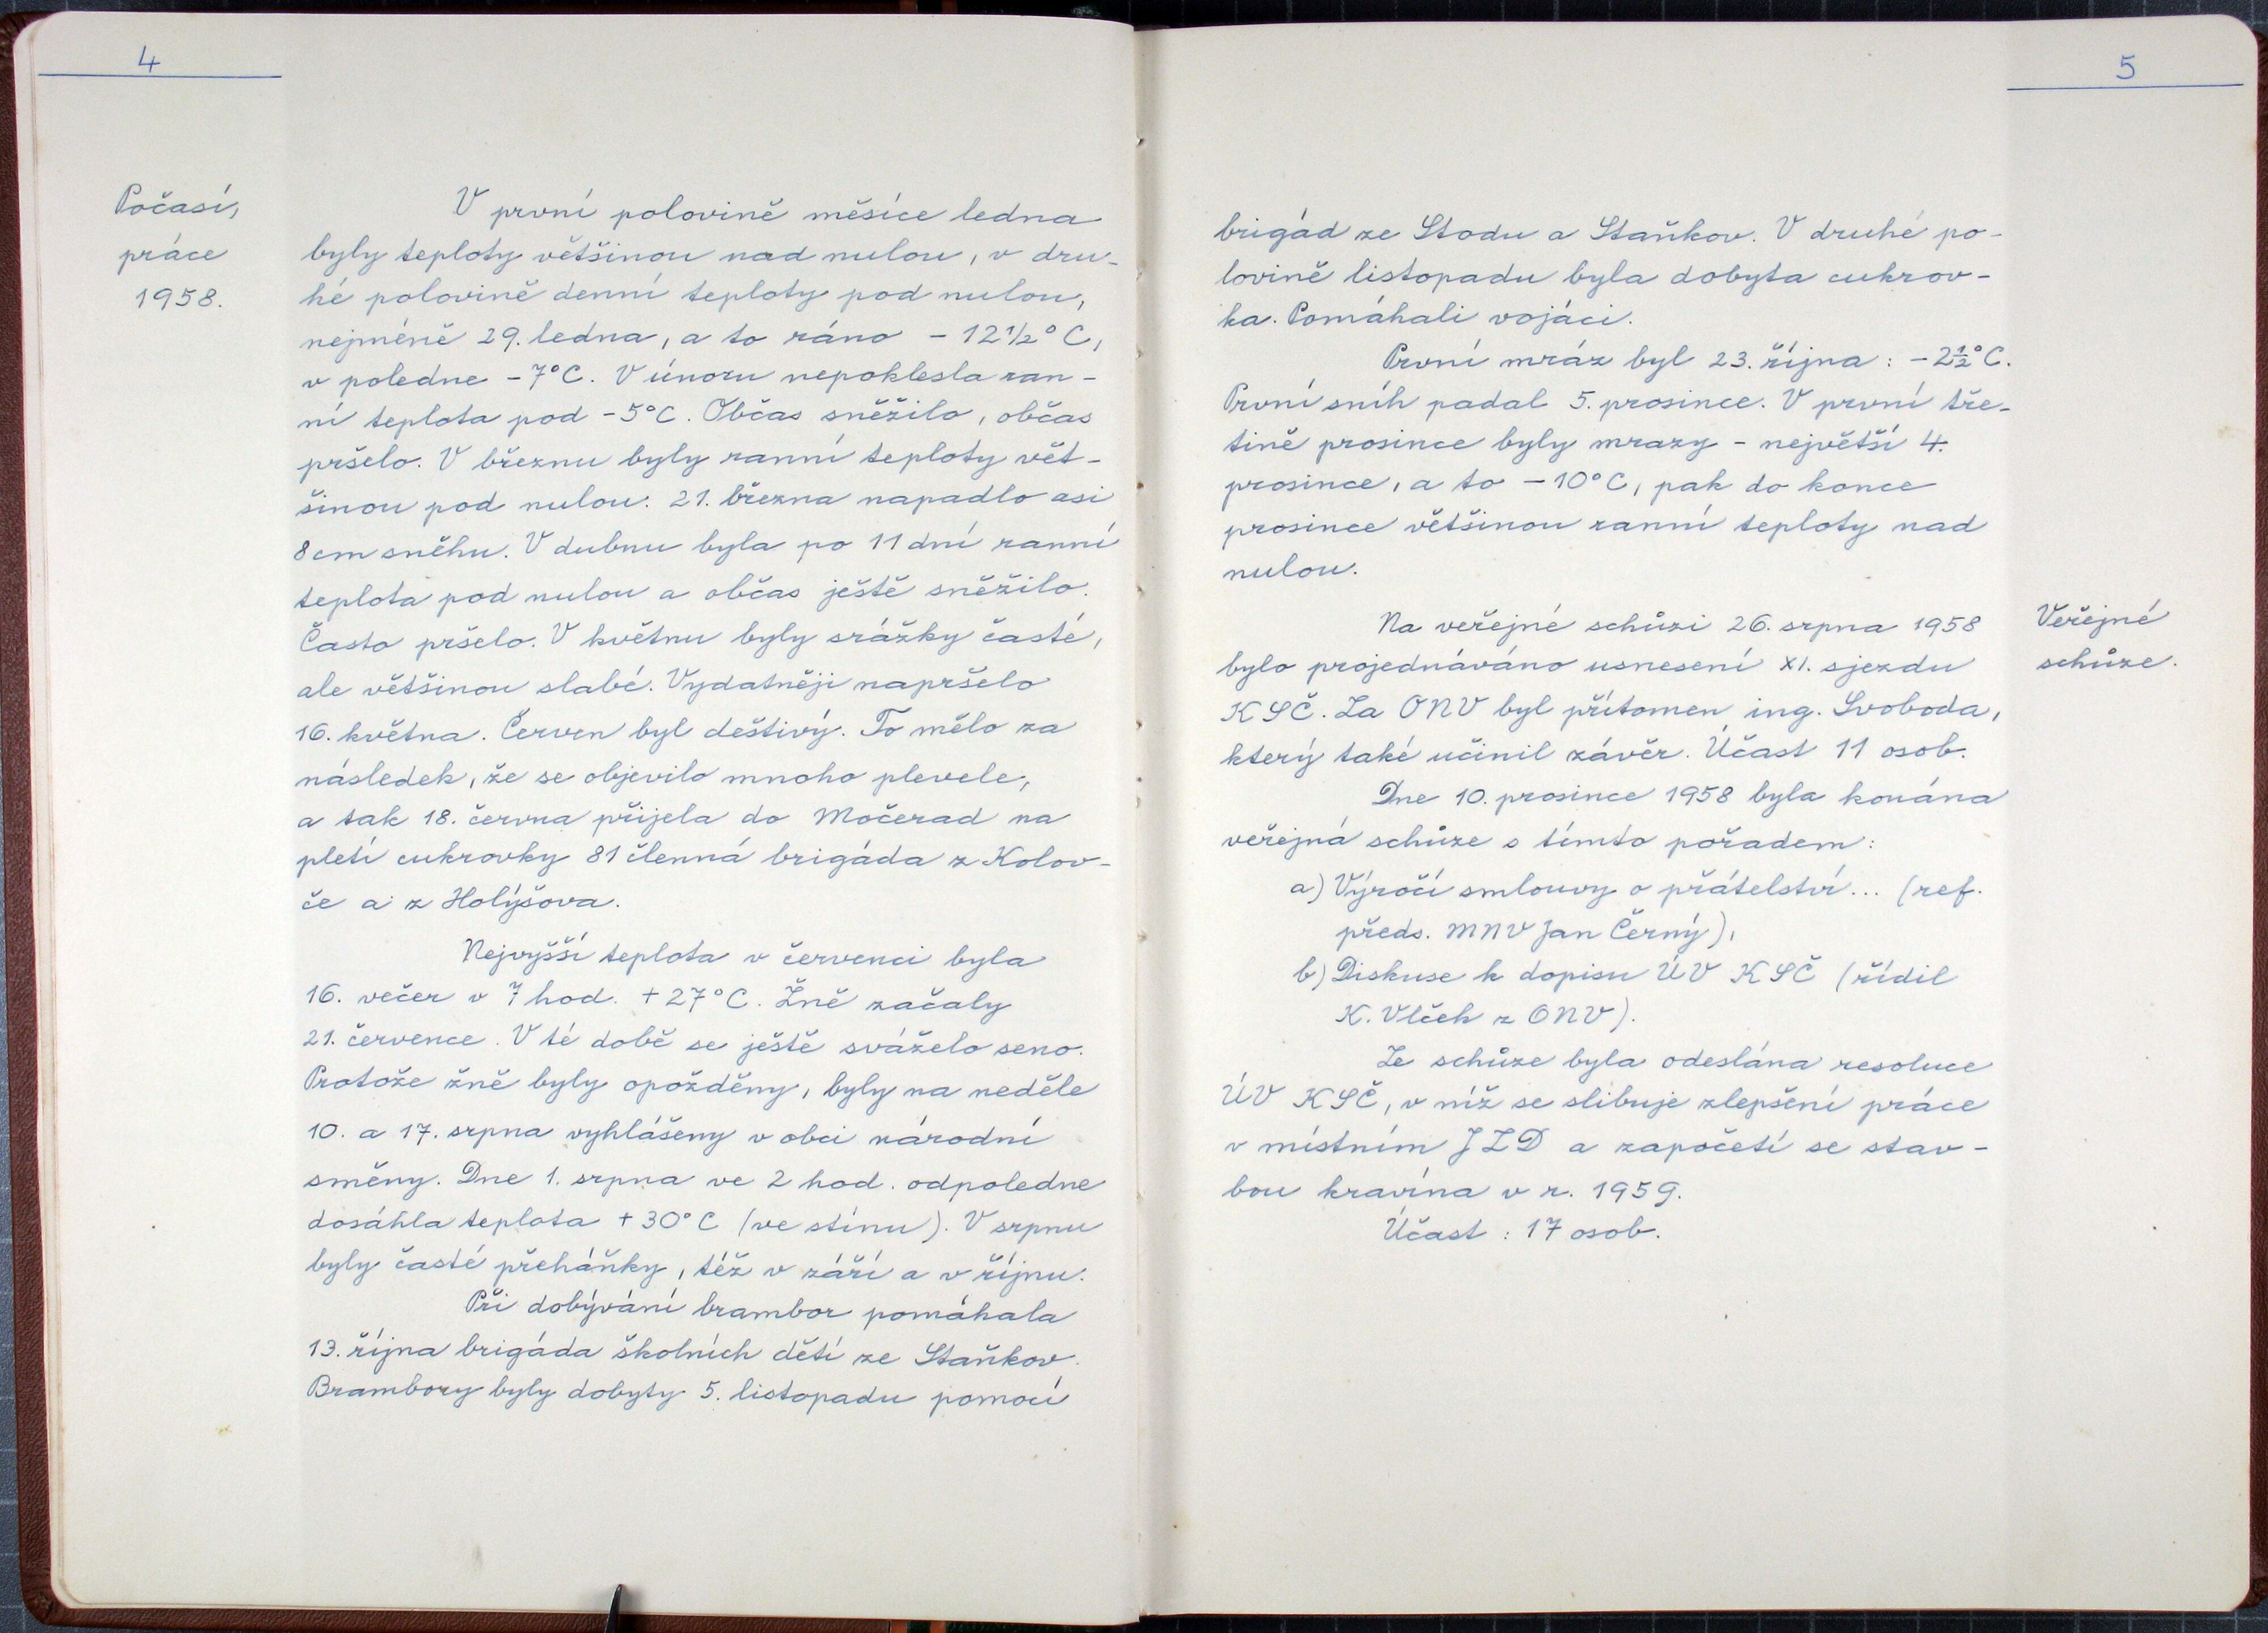 4
Počasí,
práce
1958.
V první polovině měsíce ledna
byly teploty většinou nad nulou, v dru-
hé polovině denní teploty pod nulou,
nejméně 29. ledna, a to ráno - 12 1/2° C,
v poledne - 7° C. V únoru nepoklesla ran-
ní teplota pod - 5° C. Občas sněžilo, občas
pršelo. V březnu byly ranní teploty vět-
šinou pod nulou. 21. března napadlo asi
8 cm sněhu. V dubnu byla po 11 dní ranní
teplota pod nulou a občas ještě sněžilo.
Často pršelo. V květnu byly srážky časté,
ale většinou slabé. Vydatněji napršelo
16. května. Červen byl deštivý. To mělo za
následek, že se objevilo mnoho plevele,
a tak 18. června přijela do Močerad na
pletí cukrovky 81 členná brigáda z Kolov-
če a z Holýšova.
Nejvyšší teplota v červenci byla
16. večer v 7 hod. + 27° C. Žně začaly
21. července. V té době se ještě sváželo seno.
Protože žně byly opožděny, byly na neděle
10. a 17. srpna vyhlášeny v obci národní
směny. Dne 1. srpna ve 2 hod. odpoledne
dosáhla teplota + 30° C (ve stínu). V srpnu
byly časté přeháňky, též v září a v říjnu.
Při dobývání brambor pomáhala
13. října brigáda školních dětí ze Staňkov.
Brambory byly dobyty 5. listopadu pomocí
5
brigád ze Stodu a Staňkov. V druhé po-
lovině listopadu byla dobyta cukrov-
ka. Pomáhali vojáci.
První mráz byl 23. října : - 2 1/2° C.
První sníh padal 5. prosince. V první tře-
tině prosince byly mrazy - největší 4.
prosince, a to - 10° C, pak do konce
prosince většinou ranní teploty nad
nulou.
Na veřejné schůzi 26. srpna 1958
bylo projednáváno usnesení XI. sjezdu
KSČ. Za ONV byl přítomen ing. Svoboda,
který také učinil závěr. Účast 11 osob.
Dne 10. prosince 1958 byla konána
veřejná schůze s tímto pořadem :
a) Výročí smlouvy o přátelství... (ref.
předs. MNV Jan Černý),
b) Diskuse k dopisu ÚV KSČ (řídil
K. Vlček z ONV).
Ze schůze byla odeslána resoluce
ÚV KSČ, v níž se slibuje zlepšení práce
v místním JZD a započetí se stav-
bou kravína v r. 1959.
Účast : 17 osob.
Veřejné
schůze.